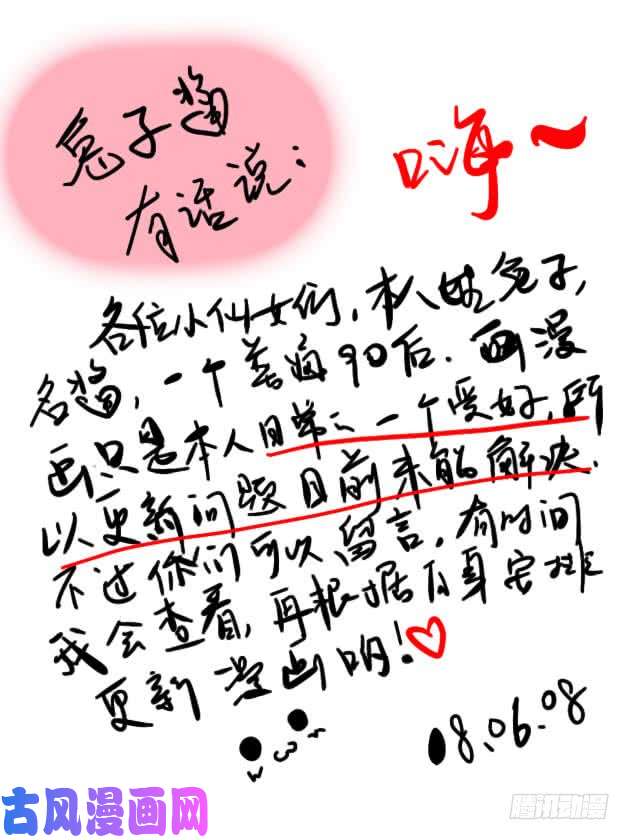 兔子酱
有话说：
嗨~
各位小仙女们，本人姓兔子，
名酱，一个普通90后.画漫
画只是本人日常之一个爱好，所
以更新问题目前未能解决.
不过你们可以留言，有时间
我会查看，再根据自身安排
更新漫画哟！
18.06.08
古风漫画网
腾讯动漫